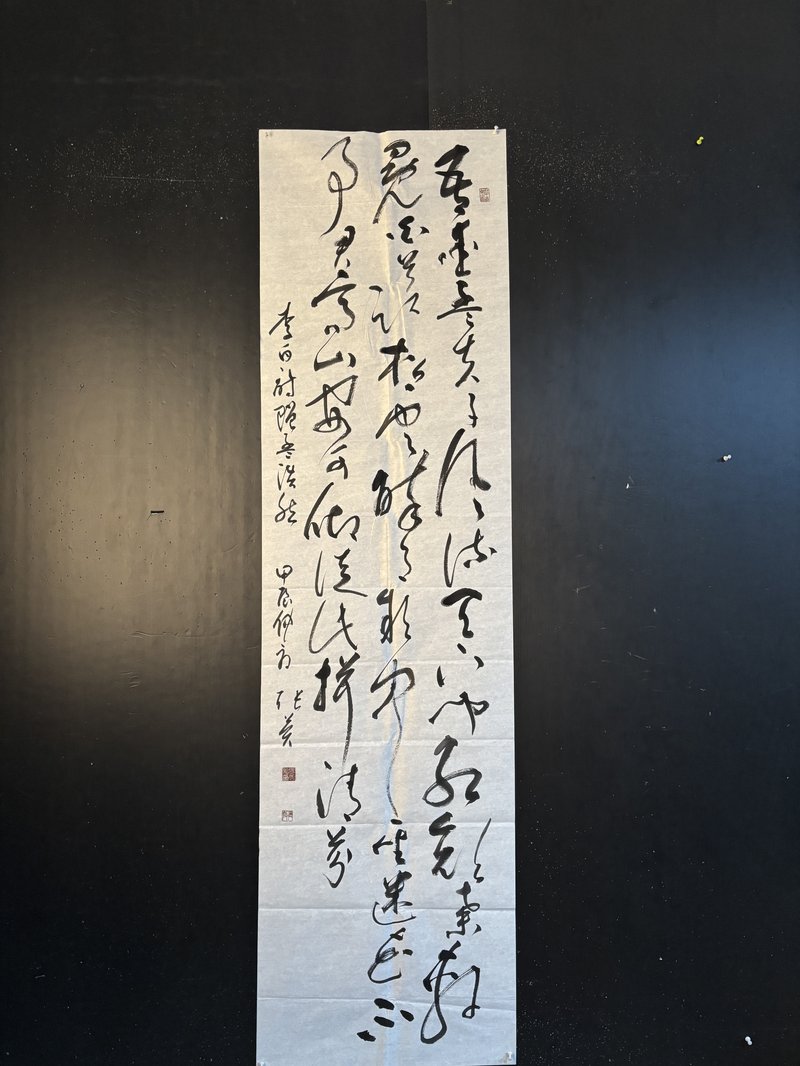 吾愛孟夫子風流天下聞紅顏棄軒
冕白首臥松雲醉月頻中聖迷花不
事君高山安可仰徒此揖清芬
李白詩贈孟浩然 甲辰